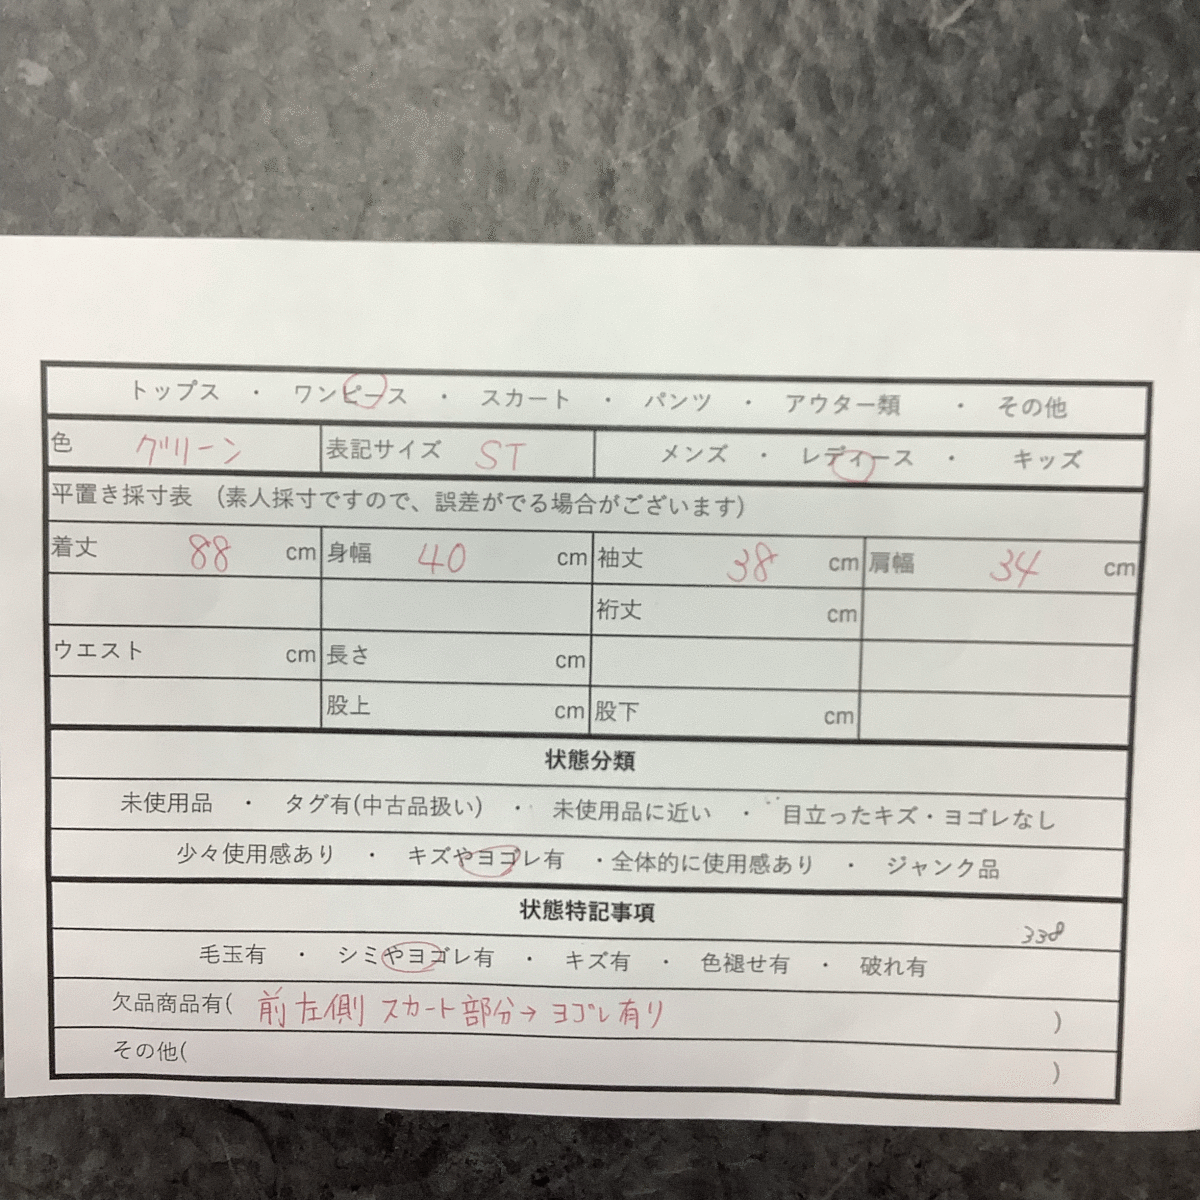 トップス ・ ワンピース ・ スカート ・ パンツ ・ アウター類 ・ その他
色 グリーン 表記サイズ ST メンズ ・ レディース ・ キッズ
平置き採寸表 （素人採寸ですので、誤差がでる場合がございます）
着丈 88 cm 身幅 40 cm 袖丈 38 cm 肩幅 34 cm
裄丈 cm
ウエスト cm 長さ cm
股上 cm 股下 cm
状態分類
未使用品 ・ タグ有(中古品扱い) ・ 未使用品に近い ・ 目立ったキズ・ヨゴレなし
少々使用感あり ・ キズやヨゴレ有 ・全体的に使用感あり ・ ジャンク品
状態特記事項
338
毛玉有 ・ シミやヨゴレ有 ・ キズ有 ・ 色褪せ有 ・ 破れ有
欠品商品有( 前左側 スカート部分→ヨゴレ有り )
その他( )